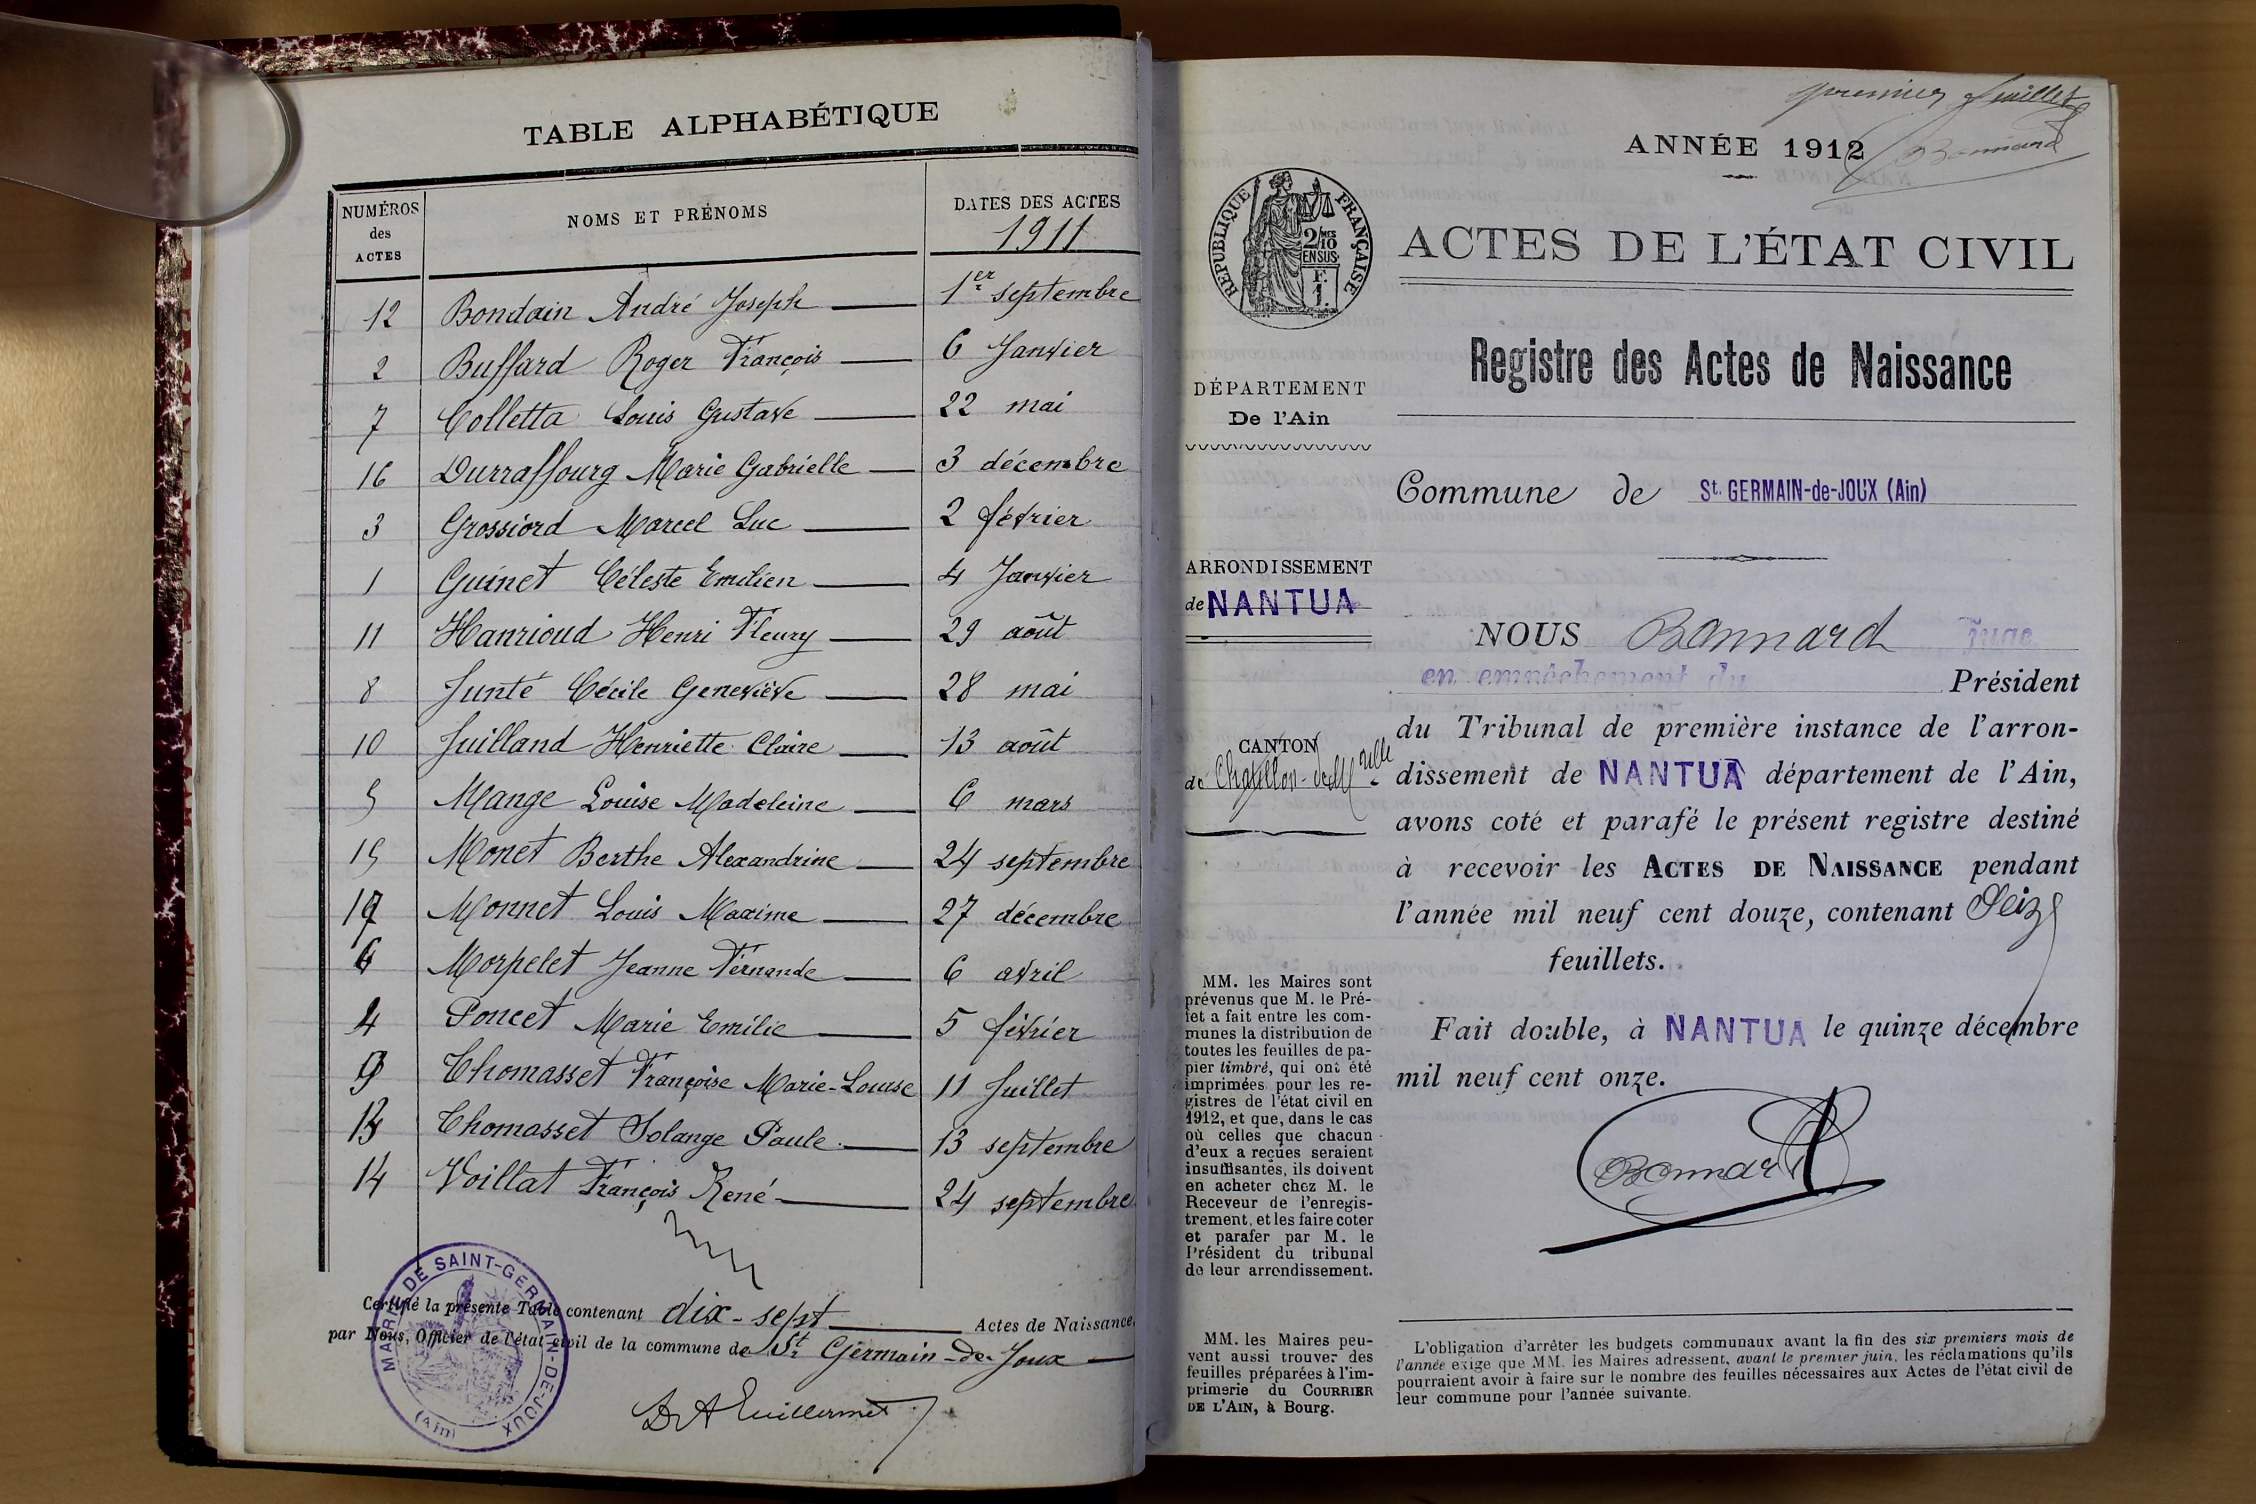 TABLE ALPHABÉTIQUE
NUMÉROS des ACTES
NOMS ET PRÉNOMS
DATES DES ACTES
1911
12 Bondain André Joseph 1er septembre
2 Buffard Roger François 6 Janvier
7 Colletta Louis Gustave 22 mai
16 Durraffourg Marie Gabrielle 3 décembre
3 Grossiord Marcel Luc 2 février
1 Guinet Céleste Emilien 4 Janvier
11 Hanrioud Henri Fleury 29 août
8 Junté Cécile Geneviève 28 mai
10 Juilland Henriette Claire 13 août
5 Mange Louise Madeleine 6 mars
15 Monet Berthe Alexandrine 24 septembre
17 Monnet Louis Maxime 27 décembre
6 Morpelet Jeanne Fernande 6 avril
4 Poncet Marie Emilie 5 février
9 Thomasset Françoise Marie-Louise 11 Juillet
13 Thomasset Solange Paule 13 septembre
14 Voillat François René 24 septembre
Certifié la présente Table contenant dix-sept Actes de Naissance,
par Nous, Officier de l'état civil de la commune de St Germain-de-Joux
MAIRIE DE SAINT-GERMAIN-DE-JOUX
(Ain)
premier feuillet
Bonnard
ANNÉE 1912
RÉPUBLIQUE FRANÇAISE
2/10MES
EN SUS
F.
1.
ACTES DE L'ÉTAT CIVIL
Registre des Actes de Naissance
DÉPARTEMENT
De l'Ain
Commune de St. GERMAIN-de-JOUX (Ain)
ARRONDISSEMENT
de NANTUA
CANTON
de Chatillon-de-Mlle
NOUS Bonnard Juge
en empêchement du Président
du Tribunal de première instance de l'arron-
dissement de NANTUA département de l'Ain,
avons coté et parafé le présent registre destiné
à recevoir les ACTES DE NAISSANCE pendant
l'année mil neuf cent douze, contenant Seize
feuillets.
Fait double, à NANTUA le quinze décembre
mil neuf cent onze.
Bonnard
MM. les Maires sont
prévenus que M. le Pré-
fet a fait entre les com-
munes la distribution de
toutes les feuilles de pa-
pier timbré, qui ont été
imprimées pour les re-
gistres de l'état civil en
1912, et que, dans le cas
où celles que chacun
d'eux a reçues seraient
insuffisantes, ils doivent
en acheter chez M. le
Receveur de l'enregis-
trement, et les faire coter
et parafer par M. le
Président du tribunal
de leur arrondissement.
MM. les Maires peu-
vent aussi trouver des
feuilles préparées à l'im-
primerie du COURRIER
DE L'AIN, à Bourg.
L'obligation d'arrêter les budgets communaux avant la fin des six premiers mois de
l'année exige que MM. les Maires adressent, avant le premier juin, les réclamations qu'ils
pourraient avoir à faire sur le nombre des feuilles nécessaires aux Actes de l'état civil de
leur commune pour l'année suivante.